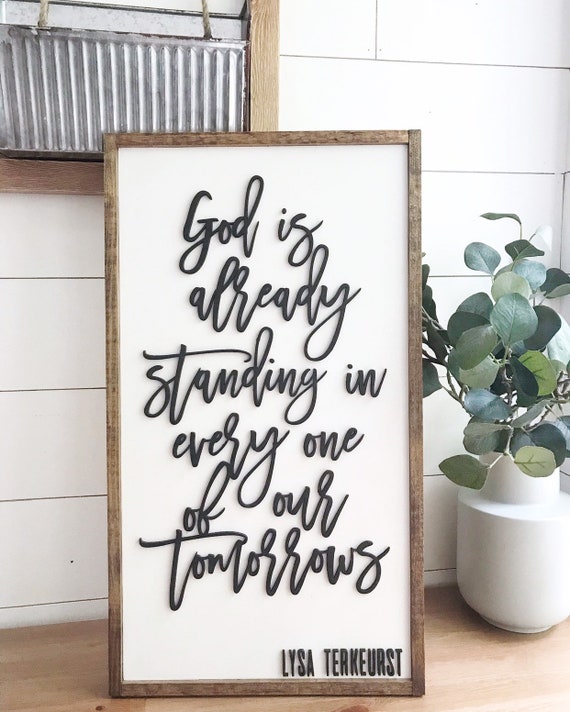 God is
already
standing in
every one
of our
tomorrows
LYSA TERKEURST